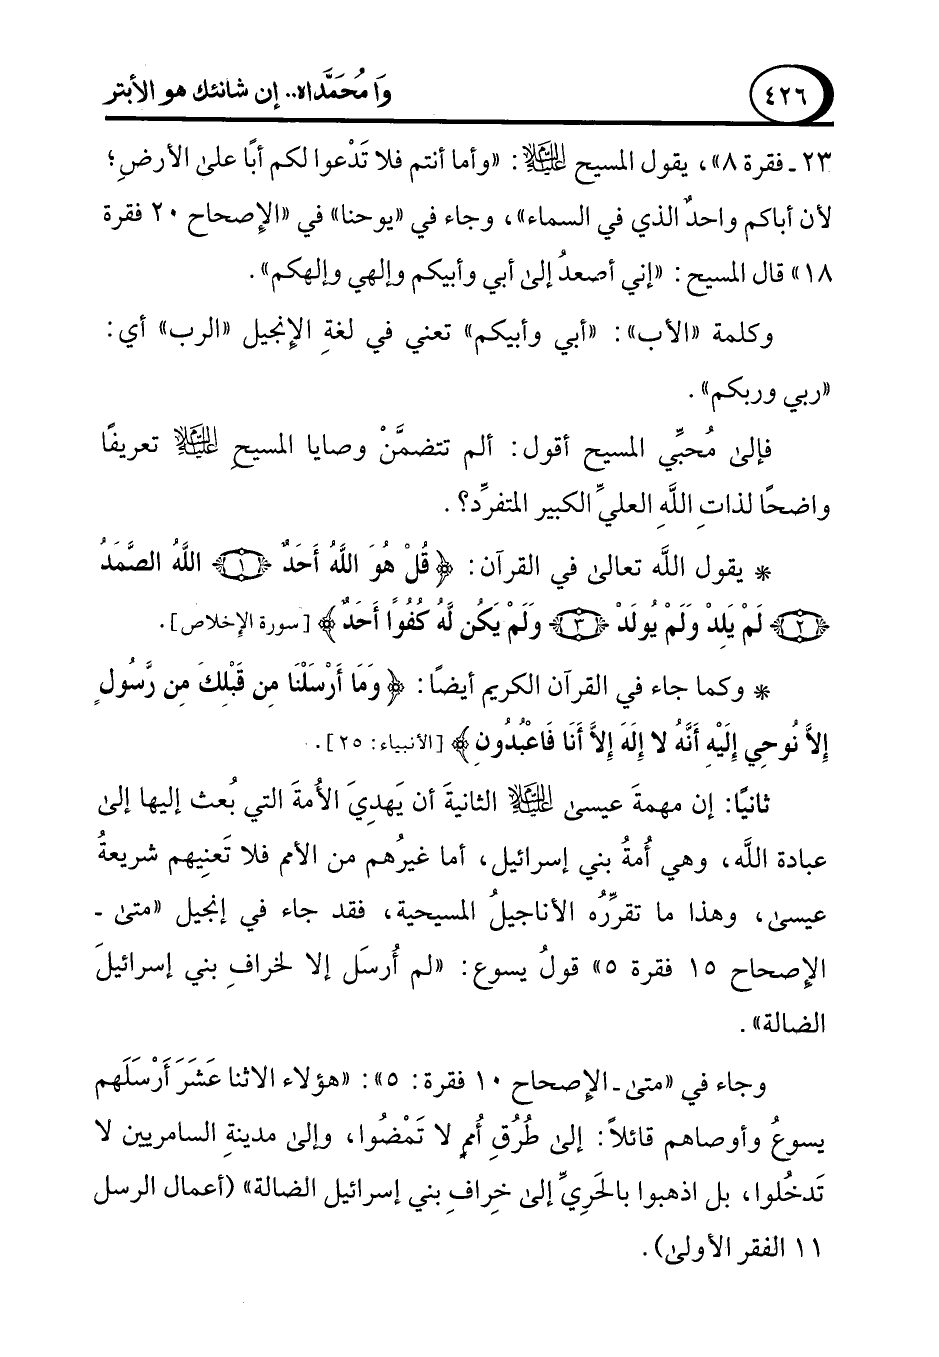 وَا مُحَمَّداه.. إن شانئك هو الأبتر
٤٢٦
٢٣ ـ فقرة ٨»، يقول المسيح عليه السلام: «وأما أنتم فلا تَدْعوا لكم أبًا على الأرضِ؛
لأن أباكم واحدٌ الذي في السماء»، وجاء في «يوحنا» في «الإصحاح ٢٠ فقرة
١٨» قال المسيح: «إني أصعدُ إلىٰ أبي وأبيكم وإلهي وإلهكم».
وكلمة «الأب»: «أبي وأبيكم» تعني في لغةِ الإنجيل «الرب» أي:
«ربي وربكم».
فإلىٰ مُحبِّي المسيح أقول: ألم تتضمَّنْ وصايا المسيحِ عليه السلام تعريفًا
واضحًا لذاتِ اللَّهِ العليِّ الكبير المتفرِّد؟.
* يقول اللَّه تعالىٰ في القرآن: ﴿قُلْ هُوَ اللَّهُ أَحَدٌ ﴿١﴾ اللَّهُ الصَّمَدُ
﴿٢﴾ لَمْ يَلِدْ وَلَمْ يُولَدْ ﴿٣﴾ وَلَمْ يَكُن لَّهُ كُفُوًا أَحَدٌ﴾ [سورة الإخلاص].
* وكما جاء في القرآن الكريم أيضًا: ﴿وَمَا أَرْسَلْنَا مِن قَبْلِكَ مِن رَّسُولٍ
إِلاَّ نُوحِي إِلَيْهِ أَنَّهُ لا إِلَهَ إِلاَّ أَنَا فَاعْبُدُونِ﴾ [الأنبياء: ٢٥].
ثانيًا: إن مهمةَ عيسىٰ عليه السلام الثانيةَ أن يَهديَ الأمةَ التي بُعث إليها إلىٰ
عبادة اللَّه، وهي أُمةُ بني إسرائيل، أما غيرُهم من الأمم فلا تَعنِيهم شريعةُ
عيسىٰ، وهذا ما تقرِّرُه الأناجيلُ المسيحية، فقد جاء في إنجيل «متىٰ -
الإصحاح ١٥ فقرة ٥» قولُ يسوع: «لم أُرسَل إلا لخرافِ بني إسرائيلَ
الضالة».
وجاء في «متىٰ ـ الإصحاح ١٠ فقرة: ٥»: «هؤلاء الاثنا عَشَرَ أَرْسَلَهم
يسوعُ وأوصاهم قائلاً: إلىٰ طُرُقِ أُممٍ لا تَمْضُوا، وإلىٰ مدينةِ السامريين لا
تَدخُلوا، بل اذهبوا بالحَرِيِّ إلىٰ خِرافِ بني إسرائيل الضالة» (أعمال الرسل
١١ الفقر الأولىٰ).